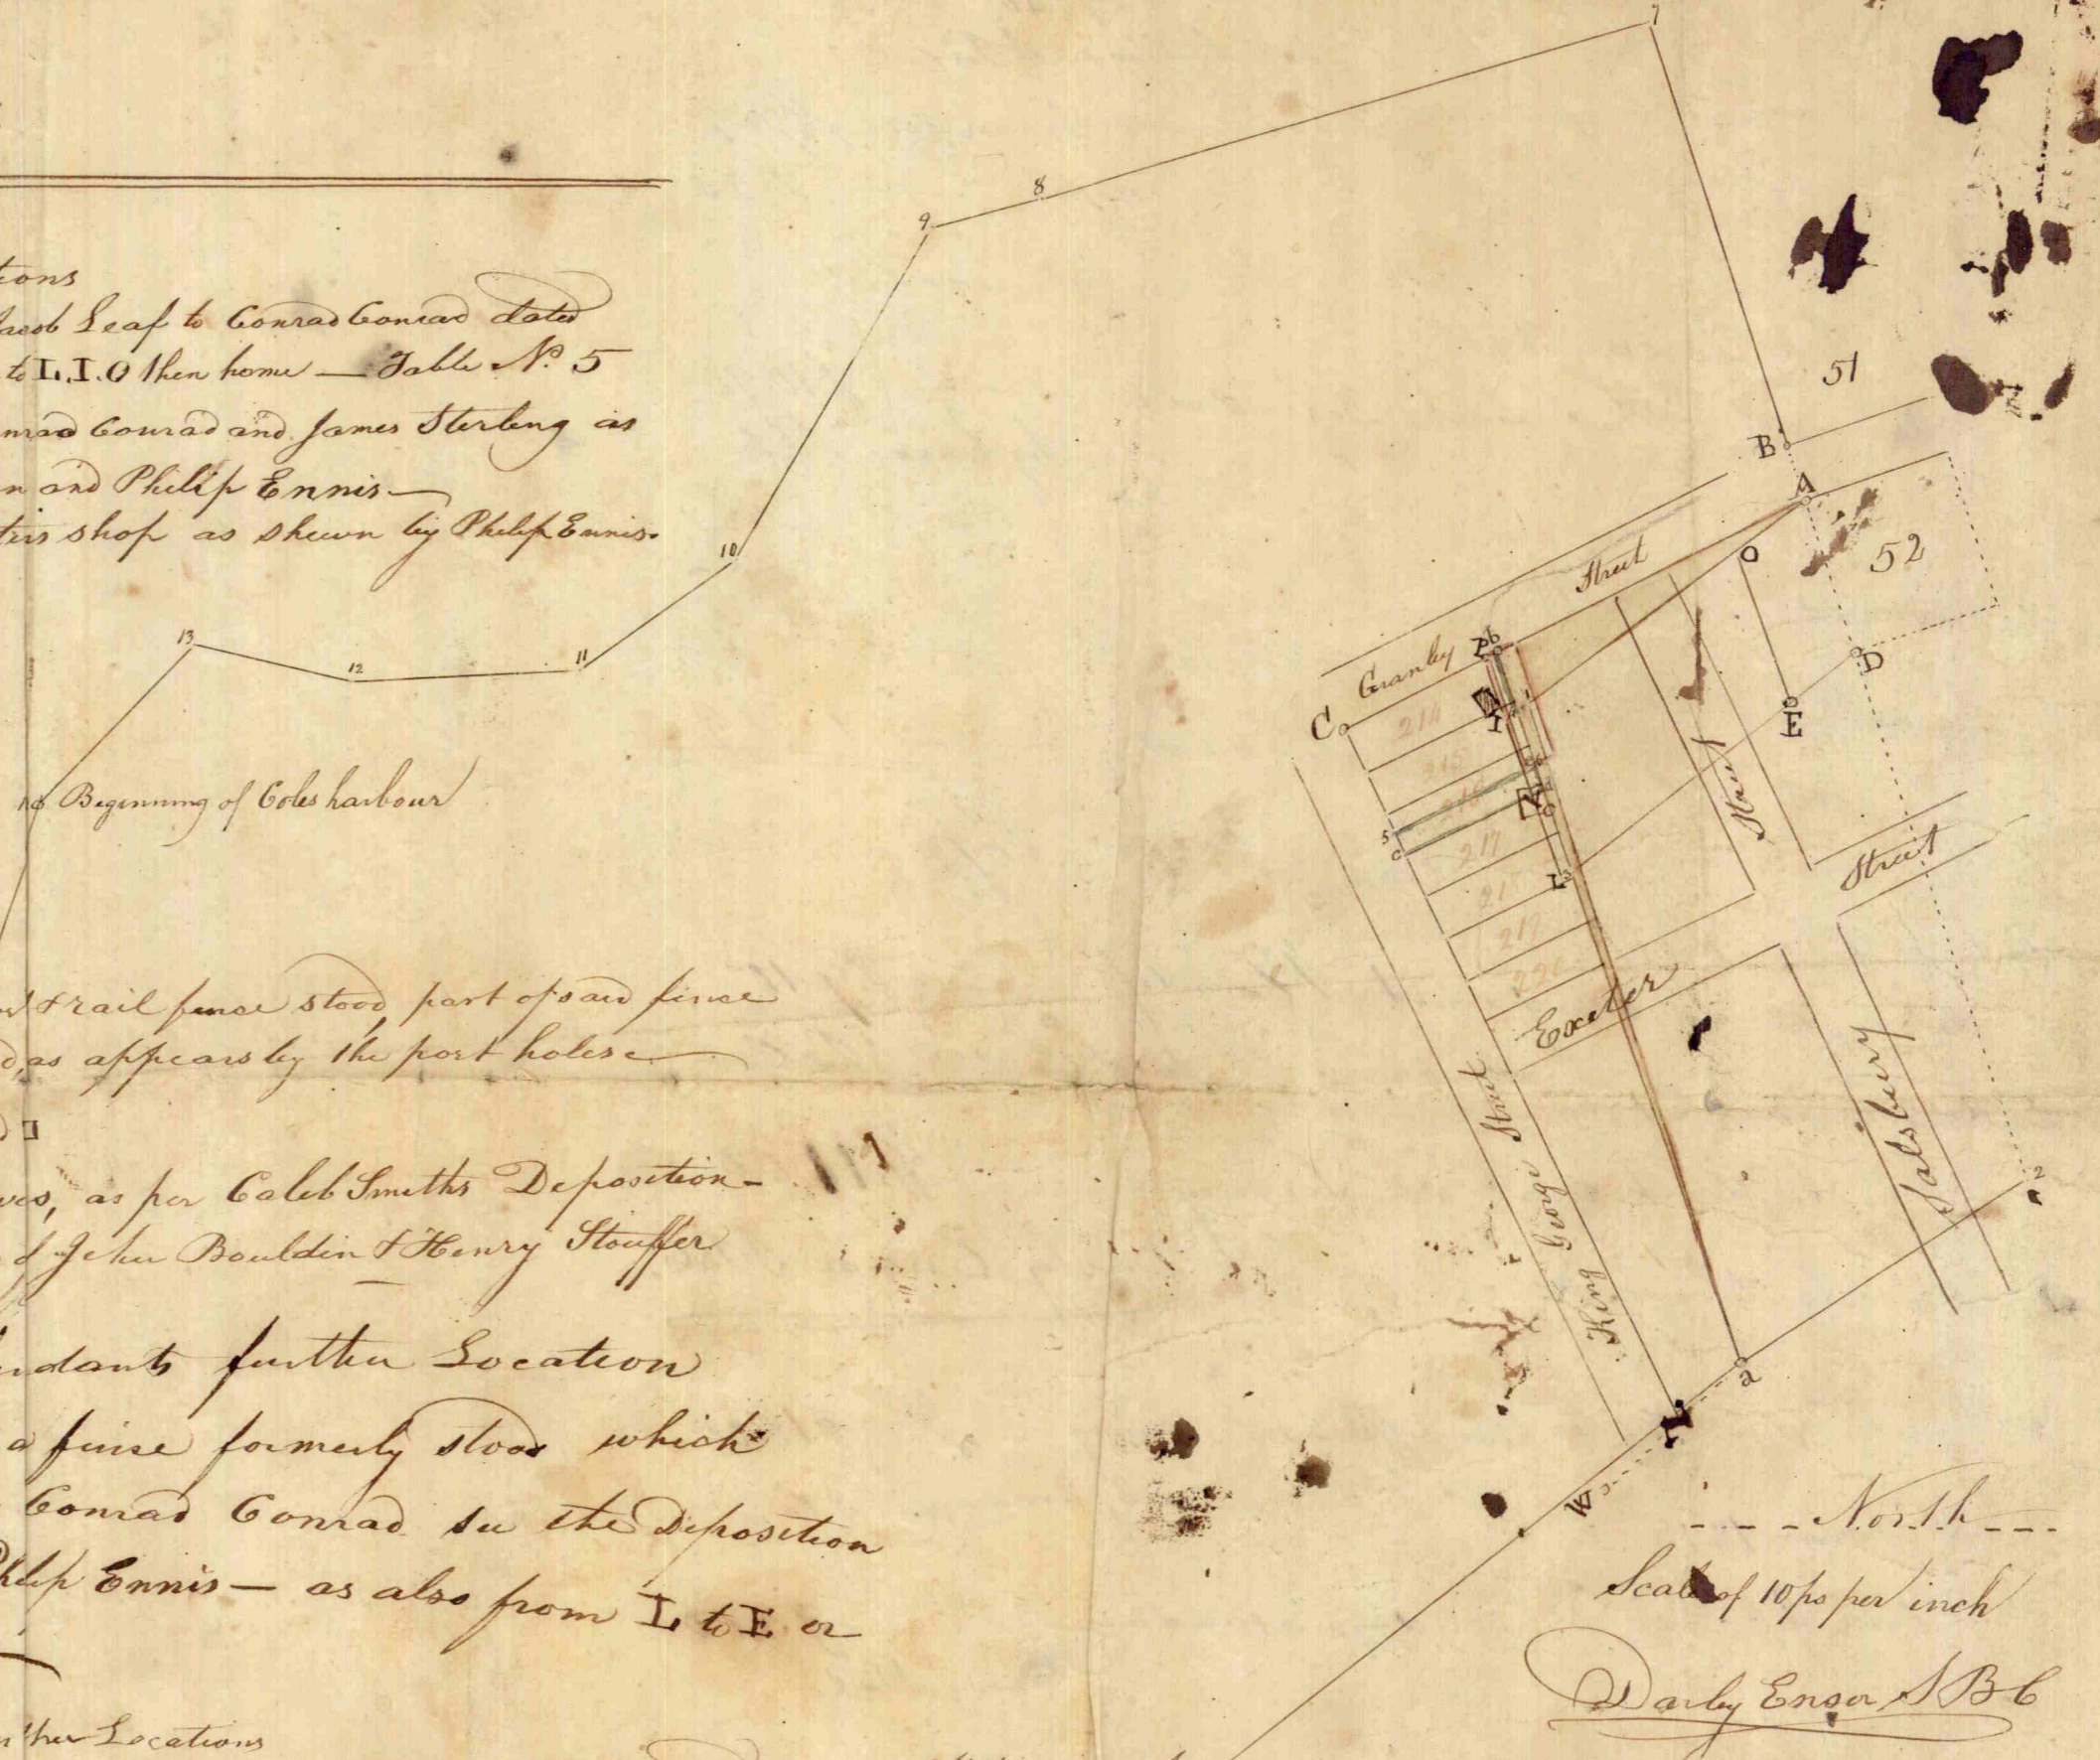 tions
Jacob Leaf to Conrad Conrad dated
to L.I.O then home — Table No. 5
nrad Conrad and James Sterling as
n and Philip Ennis —
shop as shewn by Philip Ennis.
13
12
11
10
9
8
7
Beginning of Coles harbour
rail fence stood, part of said fence
as appears by the post holes
as per Caleb Smiths Deposition —
of Jehu Bouldin & Henry Stouffer
ndants further Location
a fense formerly stood which
Conrad Conrad see the Deposition
Ennis — as also from L to E or
ther Locations
51
B
A
O
52
D
E
Granby Street
C
214
215
216
217
218
219
220
I
5
L
Hanuf
Exeter Street
Salsbury
King George Street
2
a
N
W
North
Scale of 10 ps per inch
Darby Ensor S B C